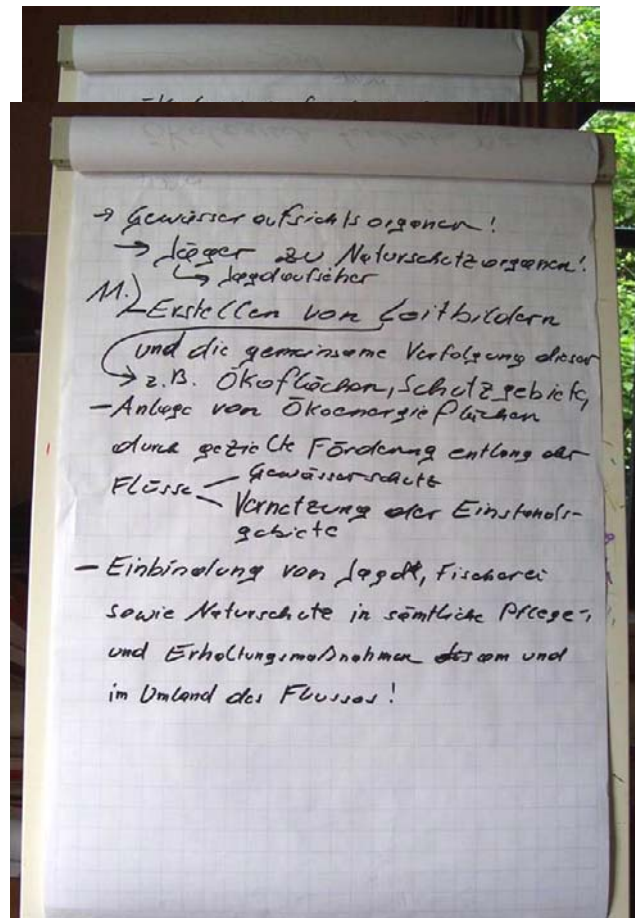 → Gewässeraufsichtsorganen!
→ Jäger zu Naturschutzorganen!
↳ Jagdaufseher
M.) Erstellen von Leitbildern
und die gemeinsame Verfolgung dieser
→ z.B. Ökoflächen, Schutzgebiete,
- Anlage von Ökoenergieflächen
durch gezielte Förderung entlang der
Flüsse - Gewässerschutz
- Vernetzung der Einstands-
gebiete
- Einbindung von Jagd, Fischerei
sowie Naturschutz in sämtliche Pflege-,
und Erhaltungsmaßnahmen am und
im Umland des Flusses!